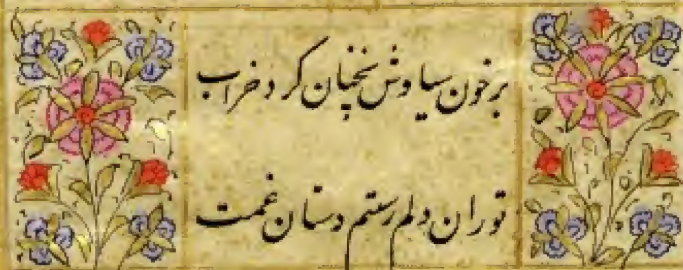 برخون سیاوش نچنان کرد خراب
توران دلم رستم دستان غمت